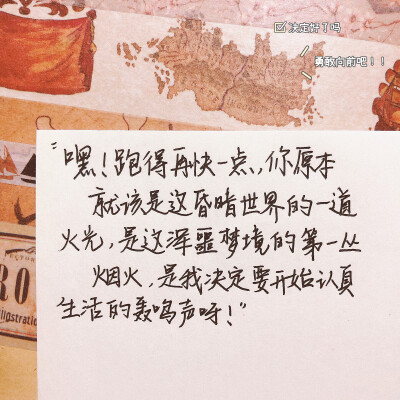 决定好了吗
勇敢向前吧！！
“嘿！跑得再快一点，你原本
就该是这昏暗世界的一道
火光，是这浑噩梦境的第一丛
烟火，是我决定要开始认真
生活的轰鸣声呀！”
RO
llustratio